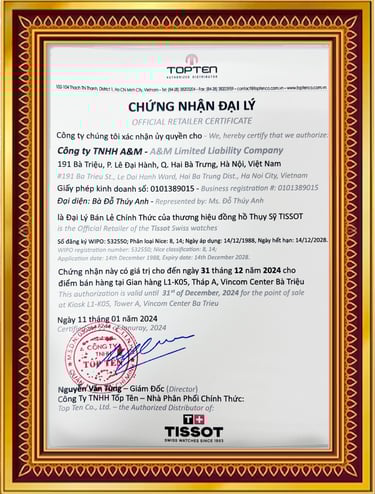 TOPTEN
AUTHORIZED DISTRIBUTOR
102-104 Thạch Thị Thanh, District 1, Ho Chi Minh City, Vietnam
www.toptenco.com.vn
CHỨNG NHẬN ĐẠI LÝ
OFFICIAL RETAILER CERTIFICATE
Công ty chúng tôi xác nhận ủy quyền cho - We, hereby certify that we authorize:
Công ty TNHH A&M - A&M Limited Liability Company
191 Bà Triệu, P. Lê Đại Hành, Q. Hai Bà Trưng, Hà Nội, Việt Nam
#191 Ba Trieu St., Le Dai Hanh Ward, Hai Ba Trung Dist., Ha Noi City, Vietnam
Giấy phép kinh doanh số: 0101389015 - Business registration #: 0101389015
Đại diện: Bà Đỗ Thúy Anh - Represented by: Ms. Đỗ Thúy Anh
là Đại Lý Bán Lẻ Chính Thức của thương hiệu đồng hồ Thụy Sỹ TISSOT
is the Official Retailer of the Tissot Swiss watches
Số đăng ký WIPO: 532550; Phân loại Nice: 8, 14; Ngày áp dụng: 14/12/1988, Ngày hết hạn: 14/12/2028.
WIPO registration number: 532550; Nice classification: 8, 14;
Application date: 14th December 1988, Expiry date: 14th December 2028.
Chứng nhận này có giá trị cho đến ngày 31 tháng 12 năm 2024 cho
điểm bán hàng tại Gian hàng L1-K05, Tháp A, Vincom Center Bà Triệu
This authorization is valid until 31st of December, 2024 for the point of sale
at Kiosk L1-K05, Tower A, Vincom Center Ba Trieu
Ngày 11 tháng 01 năm 2024
January, 2024
CÔNG TY
TNHH
TOP TEN
Nguyễn Văn Tùng – Giám Đốc (Director)
Công ty TNHH Tóp Ten – Nhà Phân Phối Chính Thức:
Top Ten Co., Ltd. – the Authorized Distributor of:
TISSOT
SWISS WATCHES SINCE 1853